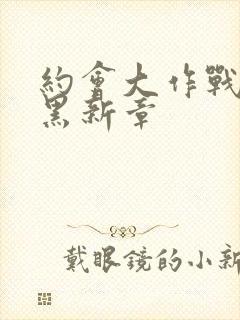 約會大作戰
黑新章
戴眼鏡的小新